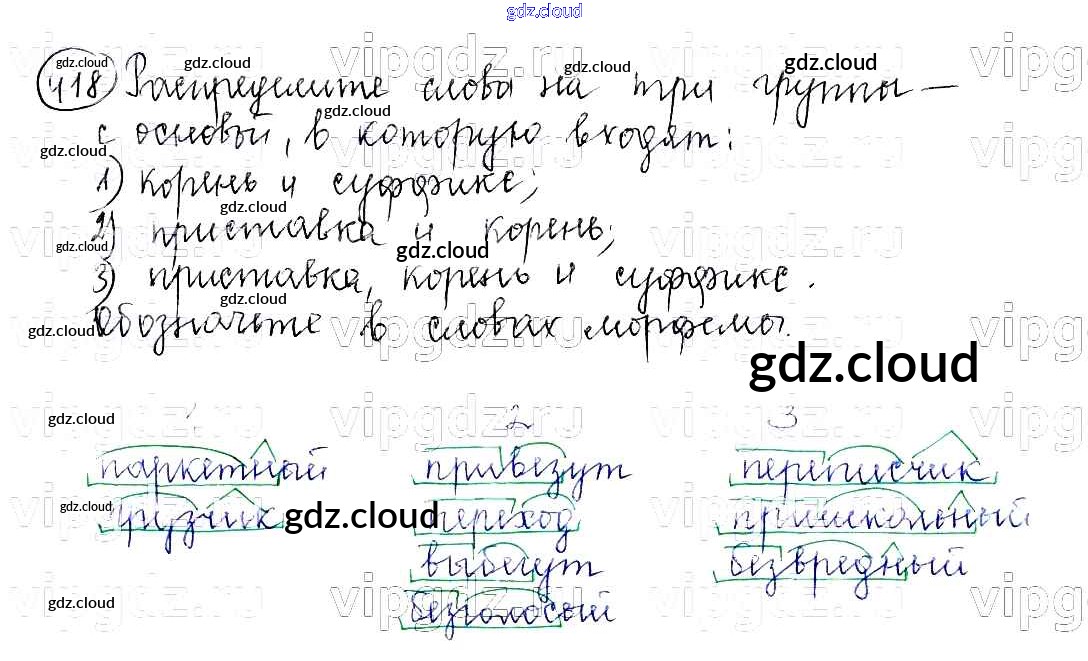 gdz.cloud
418 Распределите слова на три группы —
с основой, в которую входят:
1) корень и суффикс;
2) приставка и корень;
3) приставка, корень и суффикс.
Обозначьте в словах морфемы.
gdz.cloud
1 2 3
паркетный привезут переписчик
грузчик переход пришкольный
выбегут безвредный
безголосый